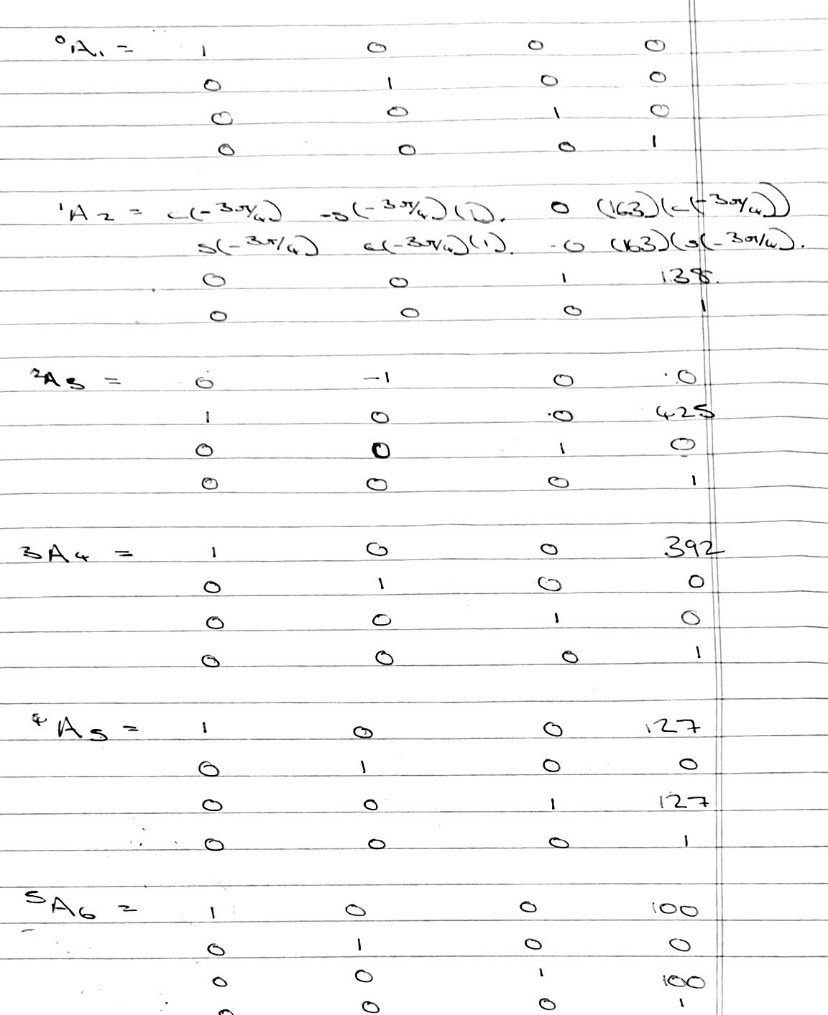 ⁰A₁ = 1 0 0 0
0 1 0 0
0 0 1 0
0 0 0 1
¹A₂ = c(-3π/4) -s(-3π/4)(1). 0 (163)(c(-3π/4))
s(-3π/4) c(-3π/4)(1). 0 (163)(s(-3π/4).
0 0 1 138.
0 0 0 1
²A₃ = 0 -1 0 0
1 0 0 425
0 0 1 0
0 0 0 1
³A₄ = 1 0 0 392
0 1 0 0
0 0 1 0
0 0 0 1
⁴A₅ = 1 0 0 127
0 1 0 0
0 0 1 127
0 0 0 1
⁵A₆ = 1 0 0 100
0 1 0 0
0 0 1 100
0 0 0 1